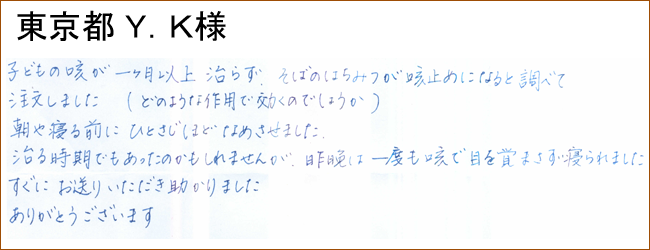 東京都 Y．K様
子どもの咳が一ヶ月以上治らず、そばのはちみつが咳止めになると調べて
注文しました （どのような作用で効くのでしょうか）
朝や寝る前にひとさじほどなめさせました。
治る時期でもあったのかもしれませんが、昨晩は一度も咳で目を覚まさず寝られました
すぐにお送りいただき助かりました
ありがとうございます